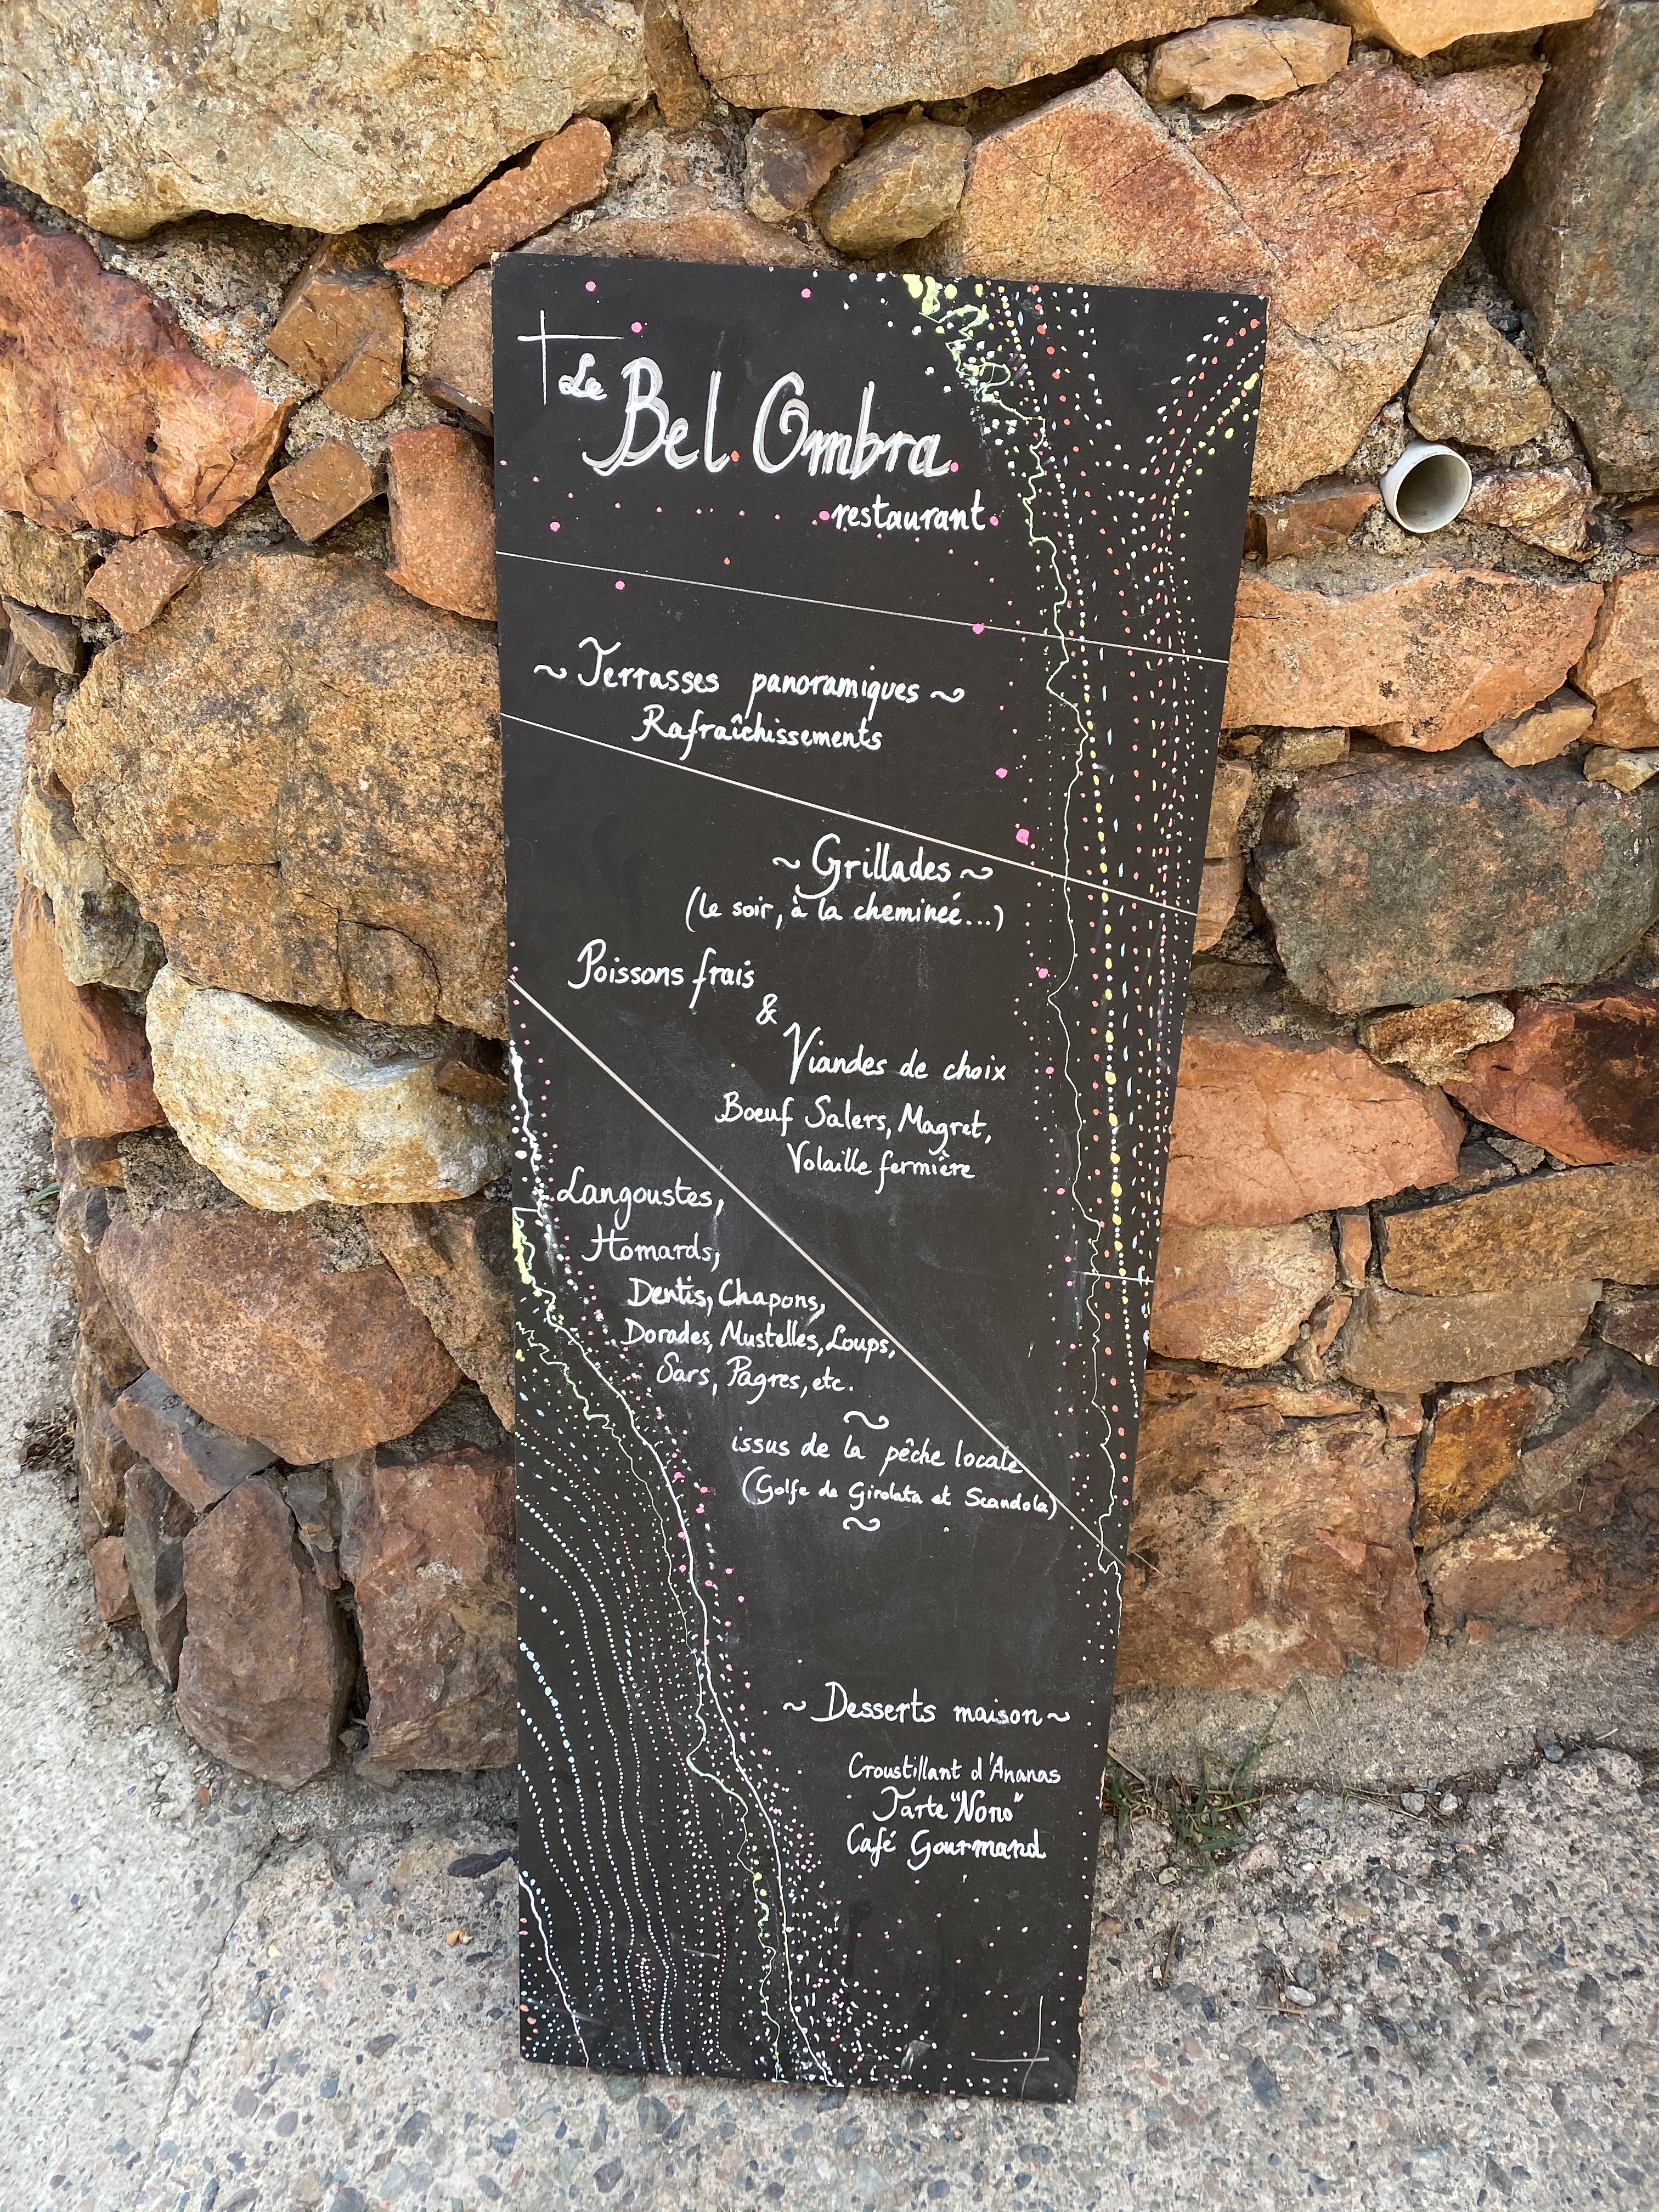 Le
Bel Ombra
restaurant
~ Terrasses panoramiques ~
Rafraîchissements
~ Grillades ~
(le soir, à la cheminéé...)
Poissons frais
&
Viandes de choix
Boeuf Salers, Magret,
Volaille fermière
Langoustes,
Homards,
Dentis, Chapons,
Dorades, Mustelles, Loups,
Sars, Pagres, etc.
~
issus de la pêche locale
(Golfe de Girolata et Scandola)
~
~ Desserts maison ~
Croustillant d'Ananas
Tarte "Nono"
Café Gourmand